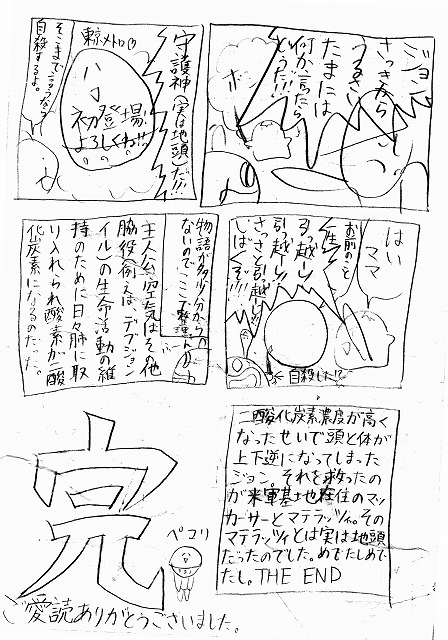 ジョン
さっきから
うるさい
たまには
何か言たら
どうだ!!!
ボ
守護神(実は地頭)だ!!!
東京メトロ
初登場
よろしくね!!!
そこまで言うなら
自殺するよ。
はい
ママ
お前のこと
一生
引っ越ーし!
引っ越ーし!!
さっさと引っ越ーし!
しばくぞ!!!
自殺した!?
物語が多少分からん
ないので、ここで整理
主人公空気はその他
脇役(例えば、デブジョン
イル)の生命活動の維
持のために日々肺に取
り入れられ酸素が二酸
化炭素になるのだった。
二酸化炭素濃度が高く
なったせいで頭と体が
上下逆になってしまった
ジョン。それを救ったの
が米軍基地在住のマッ
カーサーとマテラッツィ。その
マテラッツィとは実は地頭
だったのでした。めでたしめで
たし。THE END
完
ペコリ
ご愛読ありがとうございました。